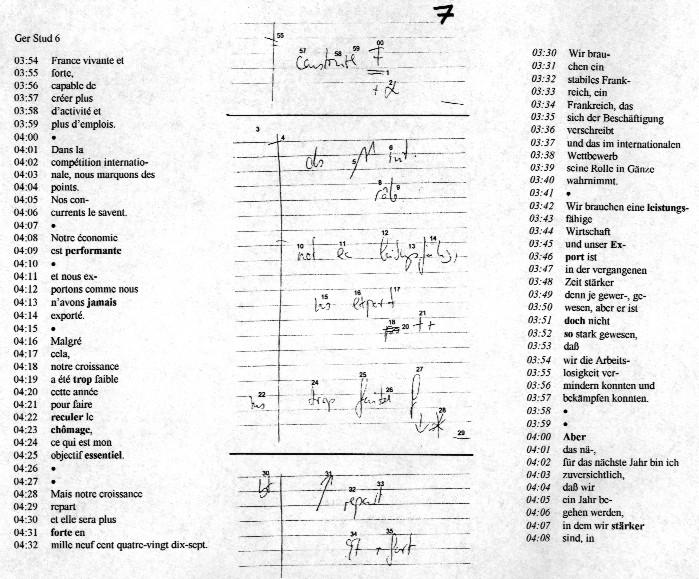 7
Ger Stud 6
03:54 France vivante et
03:55 forte,
03:56 capable de
03:57 créer plus
03:58 d'activité et
03:59 plus d'emplois.
04:00 •
04:01 Dans la
04:02 compétition internatio-
04:03 nale, nous marquons des
04:04 points.
04:05 Nos con-
04:06 currents le savent.
04:07 •
04:08 Notre économie
04:09 est performante
04:10 •
04:11 et nous ex-
04:12 portons comme nous
04:13 n'avons jamais
04:14 exporté.
04:15 •
04:16 Malgré
04:17 cela,
04:18 notre croissance
04:19 a été trop faible
04:20 cette année
04:21 pour faire
04:22 reculer le
04:23 chômage,
04:24 ce qui est mon
04:25 objectif essentiel.
04:26 •
04:27 •
04:28 Mais notre croissance
04:29 repart
04:30 et elle sera plus
04:31 forte en
04:32 mille neuf cent quatre-vingt dix-sept.
55
57 58 59 00
1
+ 2
3
4
5 6 int.
8 9
10 11 12 13 14
15 16 17
export
18 20 21
++
22 24 25 26 27
trop
28
29
30 31
32 33
repart
34 35
97 + fort
03:30 Wir brau-
03:31 chen ein
03:32 stabiles Frank-
03:33 reich, ein
03:34 Frankreich, das
03:35 sich der Beschäftigung
03:36 verschreibt
03:37 und das im internationalen
03:38 Wettbewerb
03:39 seine Rolle in Gänze
03:40 wahrnimmt.
03:41 •
03:42 Wir brauchen eine leistungs-
03:43 fähige
03:44 Wirtschaft
03:45 und unser Ex-
03:46 port ist
03:47 in der vergangenen
03:48 Zeit stärker
03:49 denn je gewer-, ge-
03:50 wesen, aber er ist
03:51 doch nicht
03:52 so stark gewesen,
03:53 daß
03:54 wir die Arbeits-
03:55 losigkeit ver-
03:56 mindern konnten und
03:57 bekämpfen konnten.
03:58 •
03:59 •
04:00 Aber
04:01 das nä-,
04:02 für das nächste Jahr bin ich
04:03 zuversichtlich,
04:04 daß wir
04:05 ein Jahr be-
04:06 gehen werden,
04:07 in dem wir stärker
04:08 sind, in